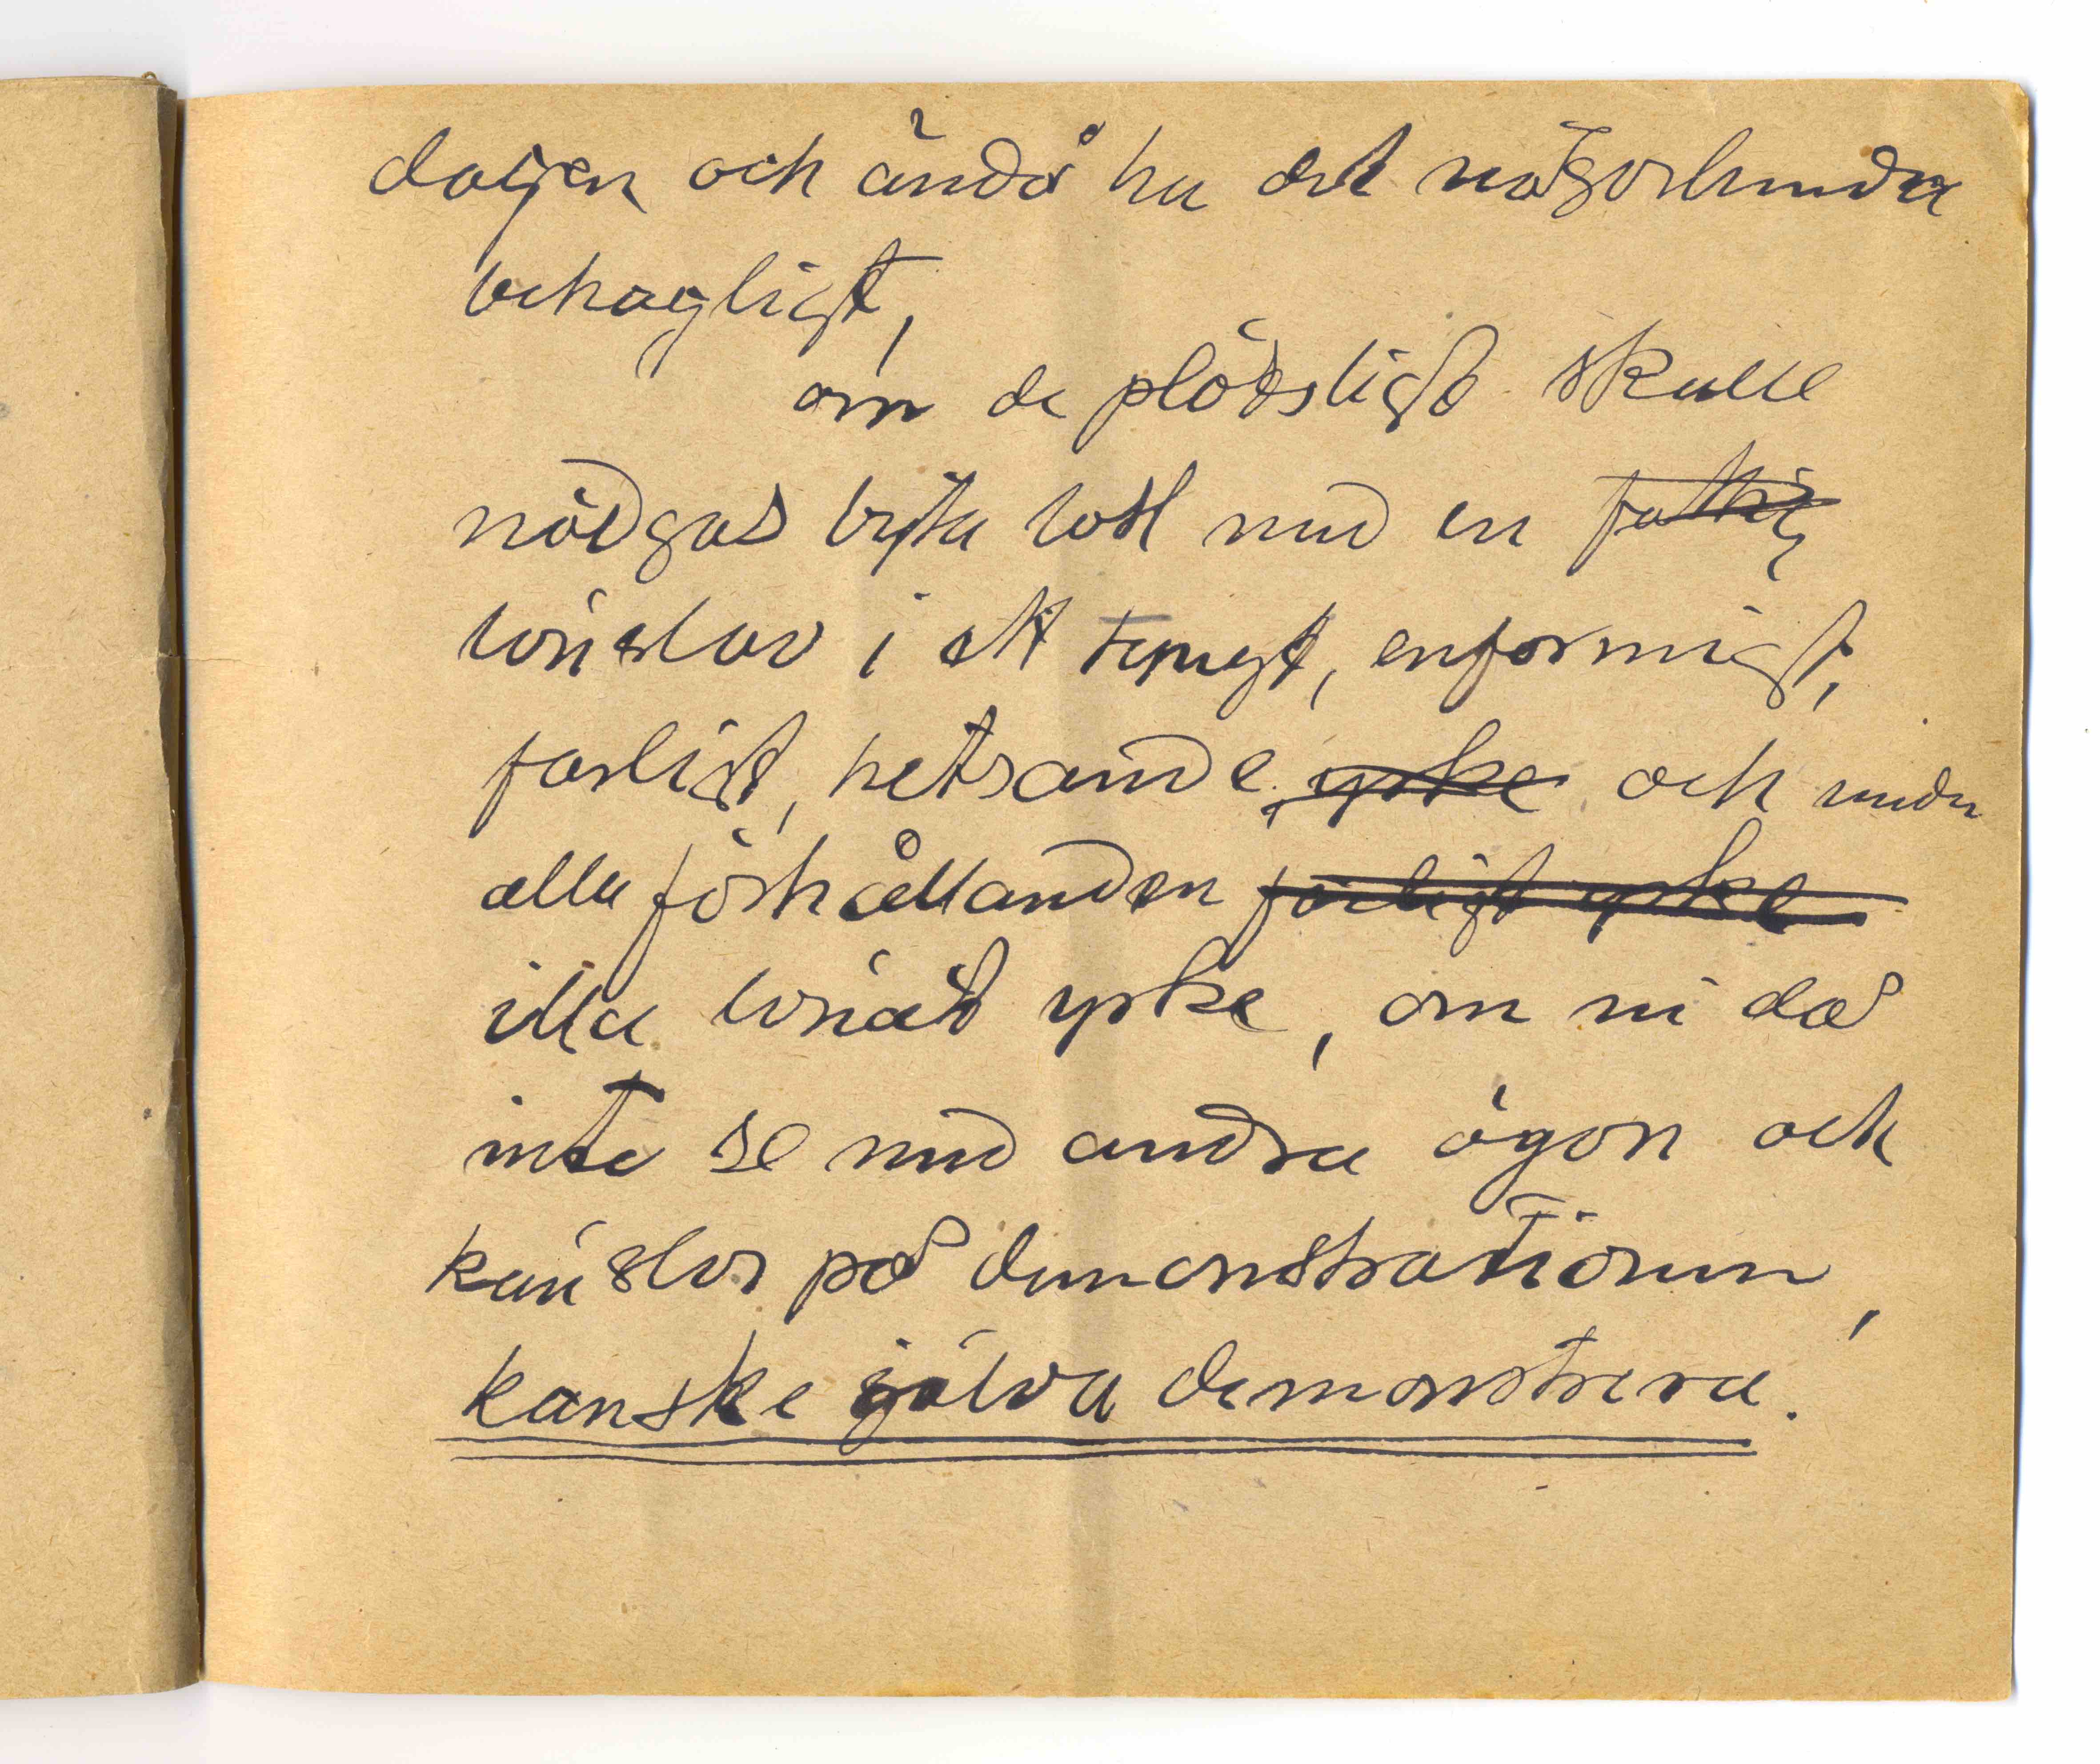 dagen och ändå ha det någorlunda
behagligt,
om de plötsligt skulle
nödgas byta lott med en fattig
löneslav i ett tungt, enformigt,
farligt, hetsande, yrke och under
alla förhållanden farligt yrke
illa lönat yrke, om ni då
inte se med andra ögon och
känslor på demonstrationen,
kanske själva demonstrera.